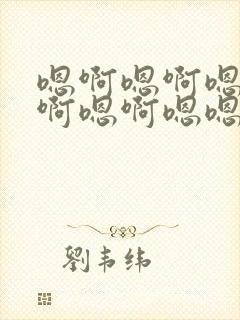 嗯啊嗯啊嗯
啊嗯啊嗯嗯
劉韦纬